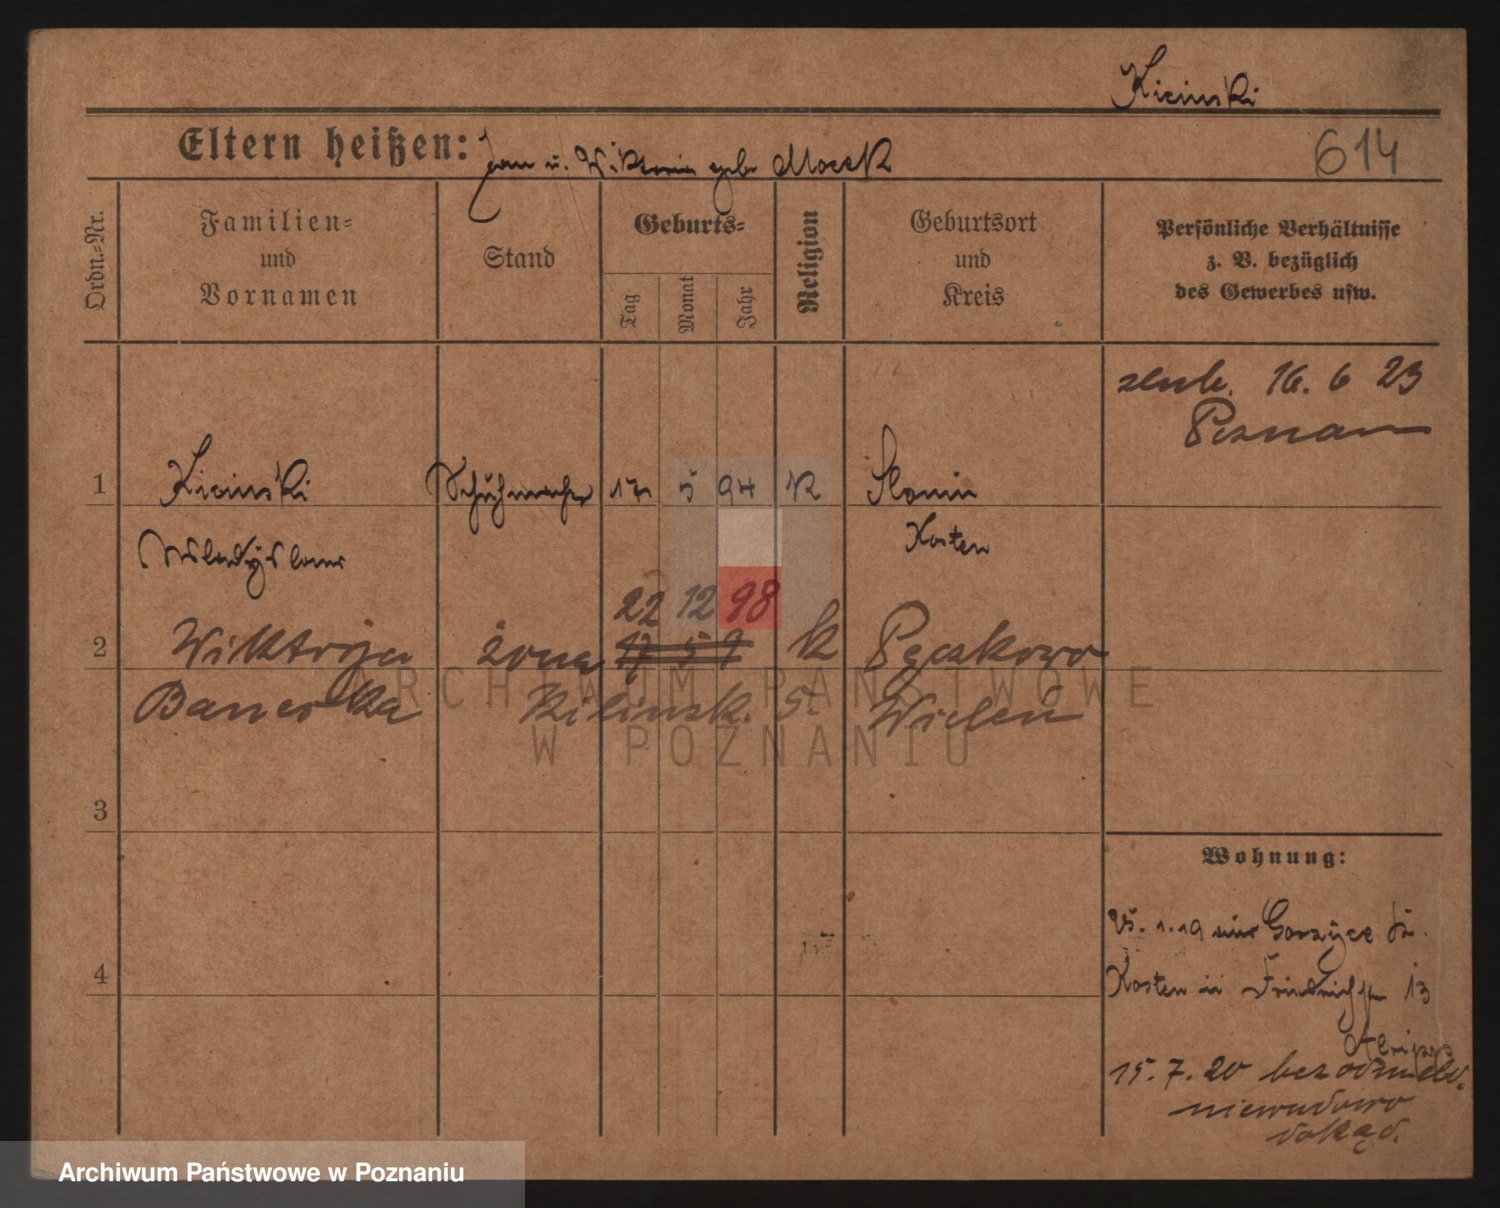 Kicinski
Eltern heißen: Jan u. Wiktoria geb. Mocek
614
Ordn.-Nr.
Familien-
und
Vornamen
Stand
Geburts-
Tag
Monat
Jahr
Religion
Geburtsort
und
Kreis
Persönliche Verhältnisse
z. B. bezüglich
des Gewerbes usw.
16. 6 23
Poznan
1 Kicinski Schuhmacher 17 5 94 K Slonin
Kosten
Wladyslaus
22 12 98
2 Wiktorja żona 17 5 9 k Pęczkowo
Banecka Kilinsk. 5. Wieleń
ARCHIWUM PAŃSTWOWE
W POZNANIU
3
Wohnung:
1.19 aus Gorzyce
4
Kosten in Friedrichstr 13
15.7.20 bez odmeld.
niewiadomo
dokąd.
Archiwum Państwowe w Poznaniu